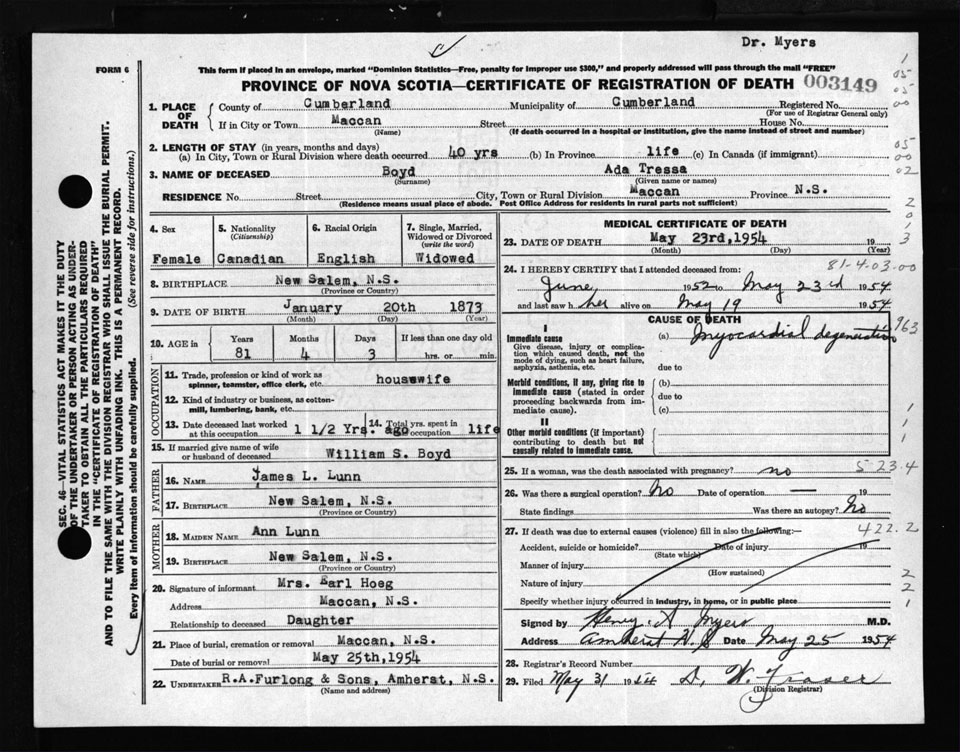 Dr. Myers
FORM 6
This form if placed in an envelope, marked "Dominion Statistics—Free, penalty for improper use $300," and properly addressed will pass through the mail "FREE"
PROVINCE OF NOVA SCOTIA—CERTIFICATE OF REGISTRATION OF DEATH 003149
SEC. 46—VITAL STATISTICS ACT MAKES IT THE DUTY
OF THE UNDERTAKER OR PERSON ACTING AS UNDER-
TAKER TO OBTAIN ALL THE PARTICULARS REQUIRED
IN THE "CERTIFICATE OF REGISTRATION OF DEATH"
AND TO FILE THE SAME WITH THE DIVISION REGISTRAR WHO SHALL ISSUE THE BURIAL PERMIT.
WRITE PLAINLY WITH UNFADING INK. THIS IS A PERMANENT RECORD.
Every item of information should be carefully supplied. (See reverse side for instructions.)
1. PLACE OF DEATH
County of Cumberland Municipality of Cumberland Registered No.
(For use of Registrar General only)
If in City or Town Maccan Street House No.
(Name) (If death occurred in a hospital or institution, give the name instead of street and number)
2. LENGTH OF STAY (in years, months and days)
(a) In City, Town or Rural Division where death occurred 40 yrs (b) In Province life (c) In Canada (if immigrant)
3. NAME OF DECEASED Boyd Ada Tressa
(Surname) (Given name or names)
RESIDENCE No. Street City, Town or Rural Division Maccan Province N.S.
(Residence means usual place of abode. Post Office Address for residents in rural parts not sufficient)
4. Sex
Female
5. Nationality
(Citizenship)
Canadian
6. Racial Origin
English
7. Single, Married,
Widowed or Divorced
(write the word)
Widowed
8. BIRTHPLACE New Salem, N.S.
(Province or Country)
9. DATE OF BIRTH January 20th 1873
(Month) (Day) (Year)
10. AGE in Years Months Days If less than one day old
81 4 3 hrs. or min.
OCCUPATION
11. Trade, profession or kind of work as
spinner, teamster, office clerk, etc. housewife
12. Kind of industry or business, as cotton-
mill, lumbering, bank, etc.
13. Date deceased last worked
at this occupation 1 1/2 Yrs. ago
14. Total yrs. spent in
occupation life
15. If married give name of wife
or husband of deceased William S. Boyd
FATHER
16. NAME James L. Lunn
17. BIRTHPLACE New Salem, N.S.
(Province or Country)
MOTHER
18. MAIDEN NAME Ann Lunn
19. BIRTHPLACE New Salem, N.S.
(Province or Country)
20. Signature of informant Mrs. Earl Hoeg
Address Maccan, N.S.
Relationship to deceased Daughter
21. Place of burial, cremation or removal Maccan, N.S.
Date of burial or removal May 25th, 1954
22. UNDERTAKER R.A.Furlong & Sons, Amherst, N.S.
(Name and address)
MEDICAL CERTIFICATE OF DEATH
23. DATE OF DEATH May 23rd, 1954 19
(Month) (Day)
81-4-03-00
24. I HEREBY CERTIFY that I attended deceased from:
June 1952 to May 23rd 1954
and last saw her alive on May 19 1954
CAUSE OF DEATH
963
I
Immediate cause
Give disease, injury or complica-
tion which caused death, not the
mode of dying, such as heart failure,
asphyxia, asthenia, etc.
(a) Myocardial degeneration
due to
Morbid conditions, if any, giving rise to
immediate cause (stated in order
proceeding backwards from im-
mediate cause).
(b)
due to
(c)
II
Other morbid conditions (if important)
contributing to death but not
causally related to immediate cause.
25. If a woman, was the death associated with pregnancy? no
5-23.4
26. Was there a surgical operation? No Date of operation — 19
State findings Was there an autopsy? No
27. If death was due to external causes (violence) fill in also the following:—
422.2
Accident, suicide or homicide? Date of injury 19
(State which)
Manner of injury
(How sustained)
Nature of injury
Specify whether injury occurred in industry, in home, or in public place
Signed by Henry A Myers M.D.
Address Amherst N.S Date May 25 1954
28. Registrar's Record Number
29. Filed May 31 1954 D. W. Fraser
(Division Registrar)
1
05
05
00
05
00
02
2
0
1
3
1
1
1
2
2
1